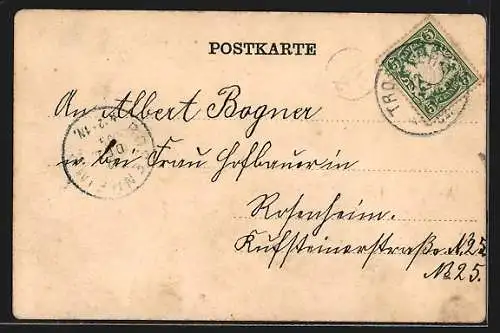 POSTKARTE
An Albert Bogner
w. bei Frau Hofbauer in
Rosenheim.
Kufsteinerstraße N. 25
No. 25.
5 5
5 5
TRO